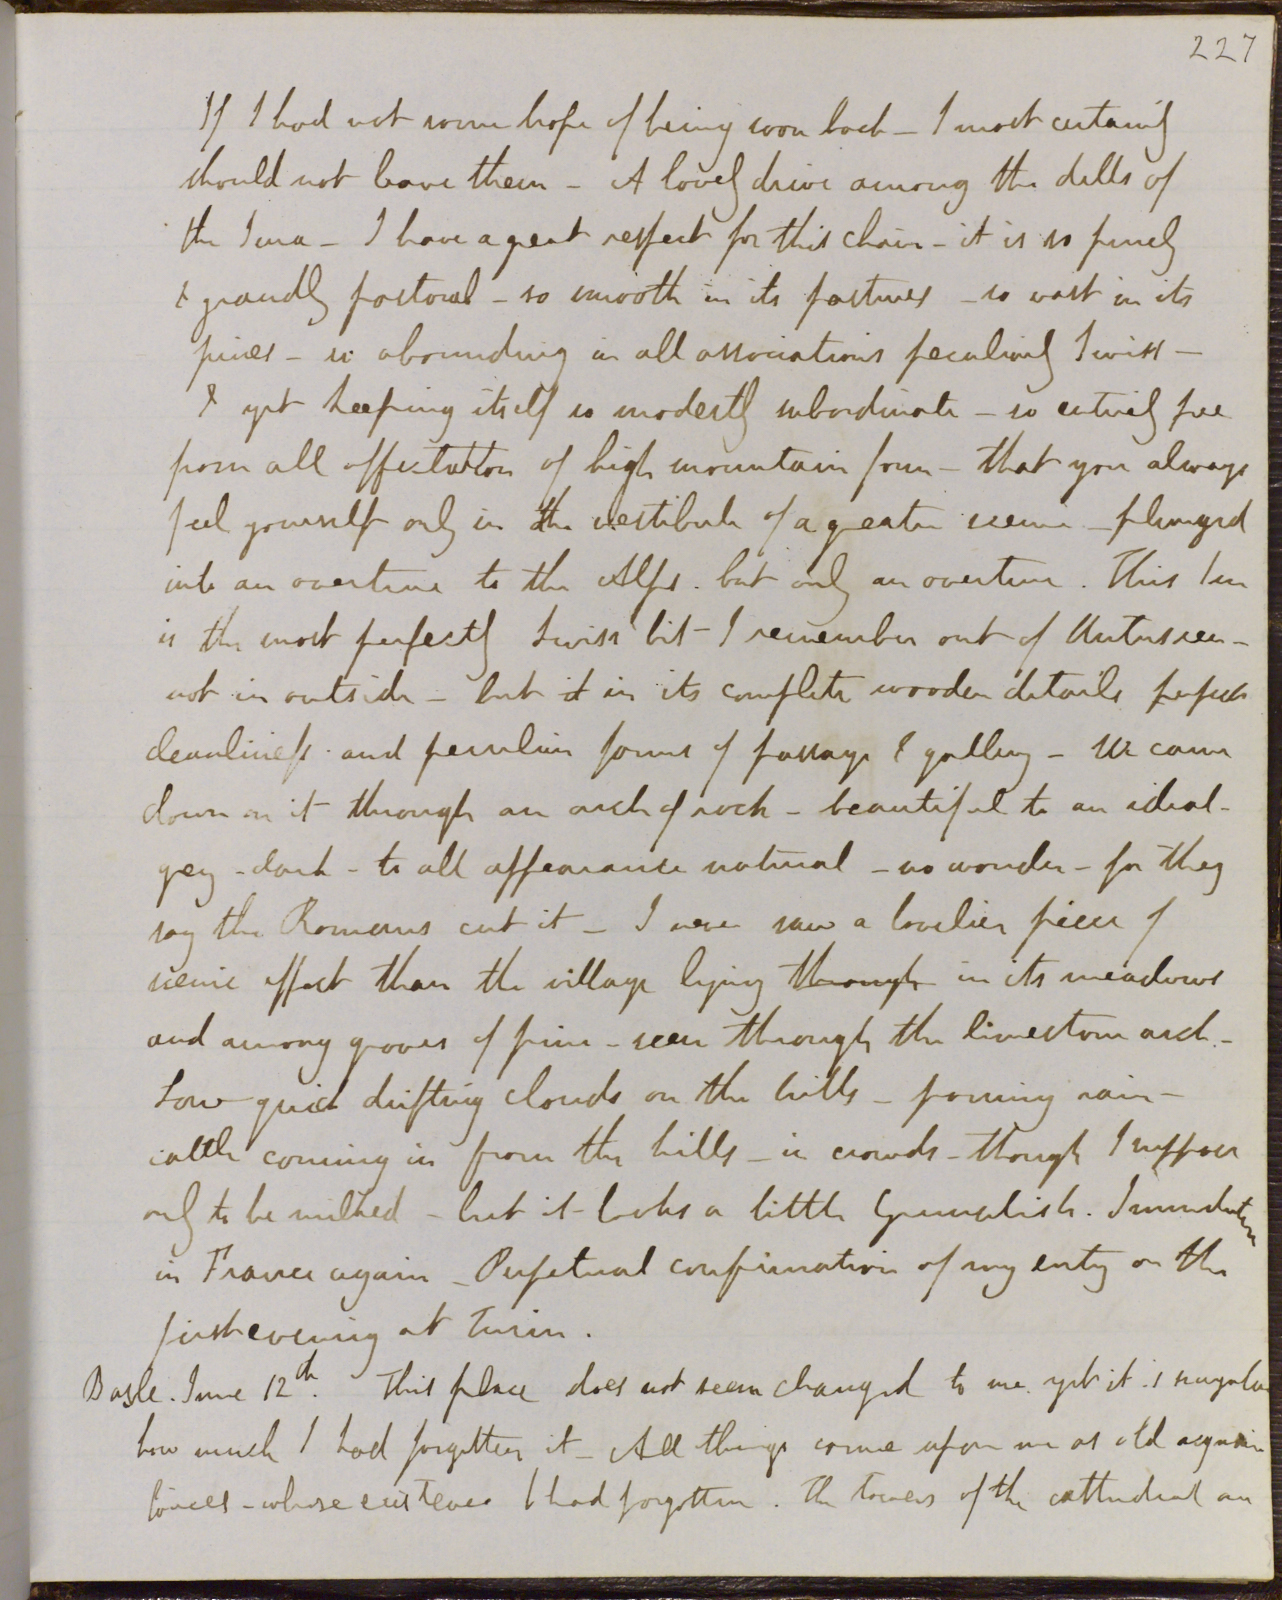 227
If I had not some hope of being soon back – I most certainly
should not leave them – A lovely drive among the dells of
the Jura – I have a great respect for this chain – it is so purely
& grandly pastoral – so smooth in its pastures – so vast in its
pines – so abounding in all associations peculiarly Swiss –
& yet keeping itself so modestly subordinate – so entirely free
from all affectation of high mountain form – that you always
feel yourself only in the vestibule of a greater scene – plunged
into an overture to the Alps. but only an overture. This Inn
is the most perfectly Swiss bit I remember out of Unterseen –
not in outside – but it in its complete wooden details perfect
cleanliness and peculiar forms of passage & gallery – We came
down on it through an arch of rock – beautiful to an ideal –
grey – dark – to all appearance natural – no wonder – for they
say the Romans cut it – I never saw a lovelier piece of
scenic effect than the village lying through in its meadows
and among groves of pine – seen through the limestone arch. –
Low quick drifting clouds on the hills – pouring rain –
cattle coming in from the hills – in crowds – though I suppose
only to be milked – but it looks a little Grumpish. Immediately
in France again – Perpetual confirmation of my entry on the
first evening at Turin.
Basle. June 12th. This place does not seem changed to me. yet it is singular
how much I had forgotten it – All things come upon me as old acquain
tances – whose existence I had forgotten. The towers of the cathedral are